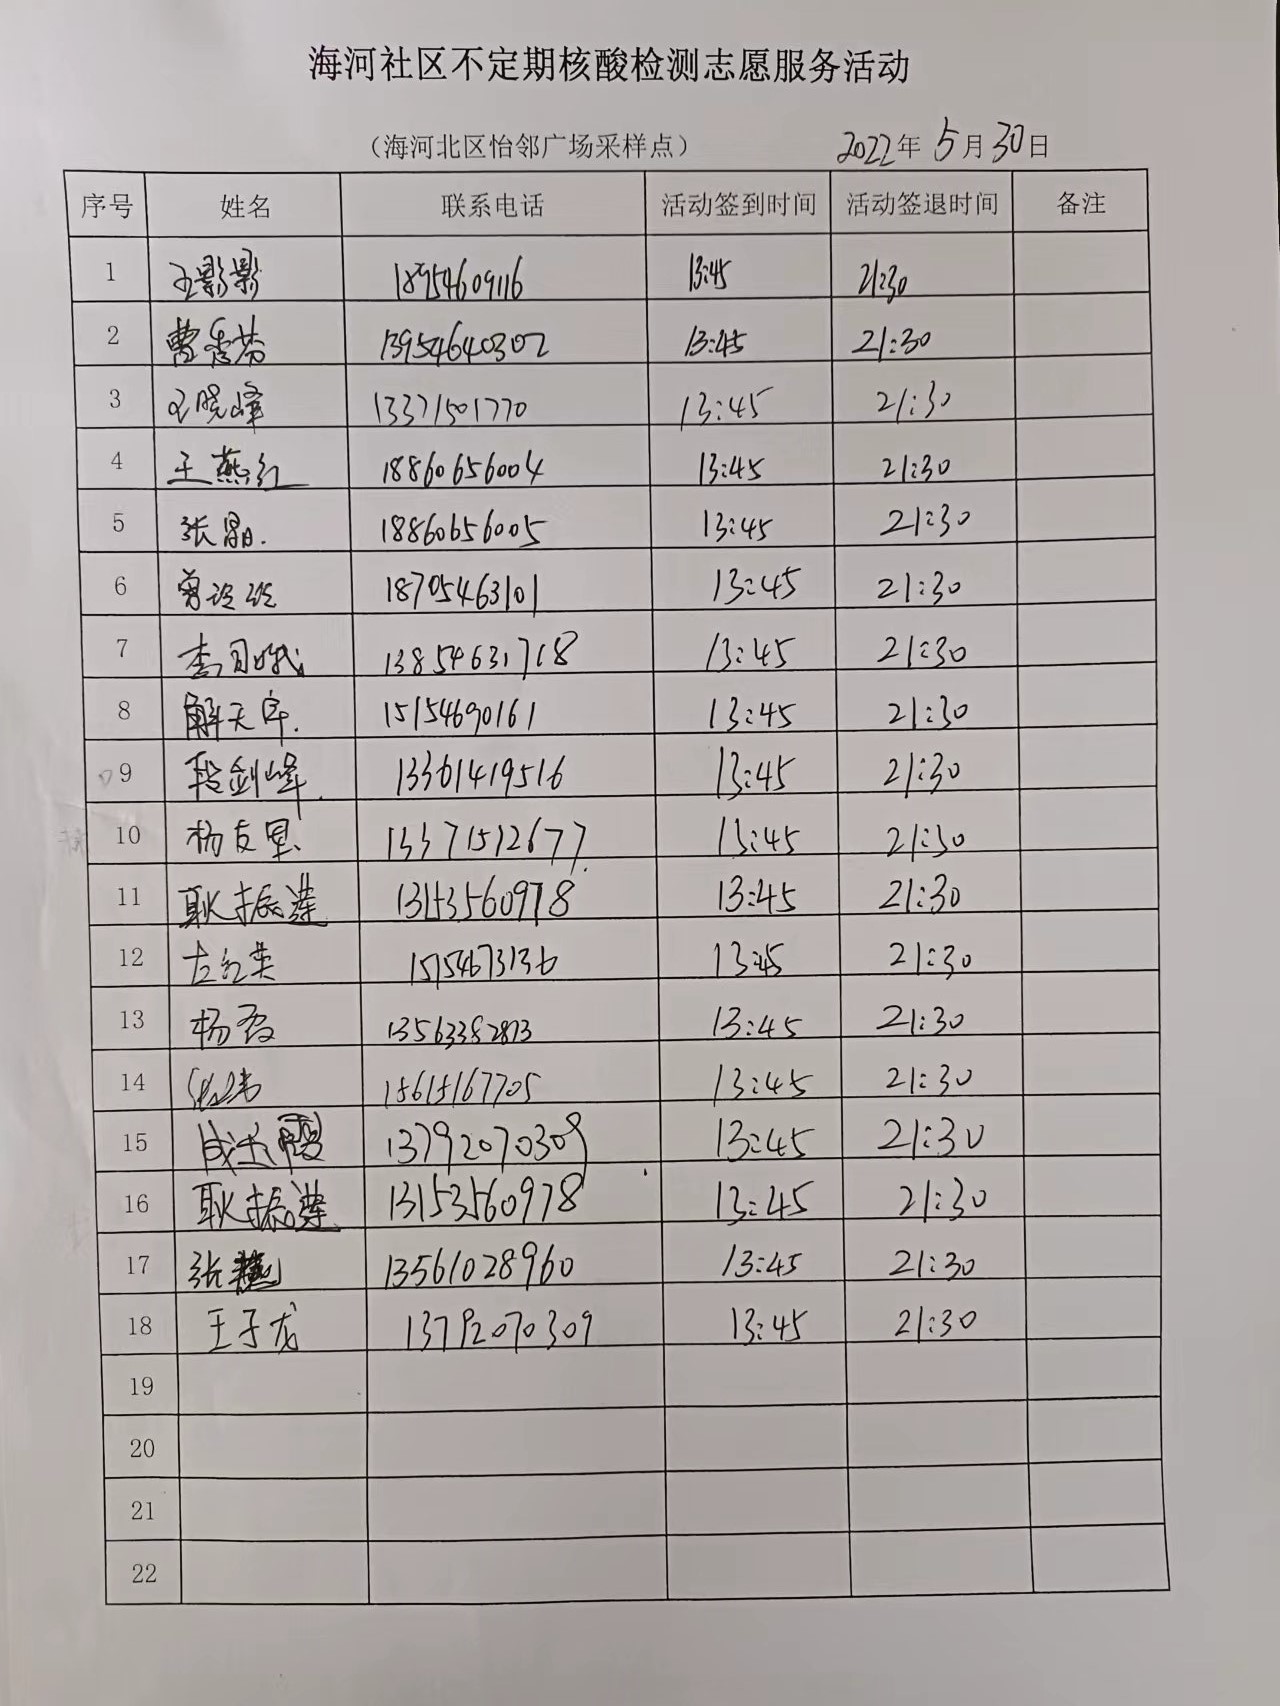 海河社区不定期核酸检测志愿服务活动
（海河北区怡邻广场采样点） 2022年 5月 30日
序号 姓名 联系电话 活动签到时间 活动签退时间 备注
1 王影影 18954609116 13:45 21:30
2 曹秀芬 13954640302 13:45 21:30
3 王晓峰 13371501770 13:45 21:30
4 王燕红 18860656004 13:45 21:30
5 张晶. 18860656005 13:45 21:30
6 曾玲玲 18705463101 13:45 21:30
7 李月娥 13854631718 13:45 21:30
8 解天牢. 15154690161 13:45 21:30
9 段剑峰. 13361419516 13:45 21:30
10 杨友星 13371512677 13:45 21:30
11 耿振莲 13153560978 13:45 21:30
12 左红英 15154673136 13:45 21:30
13 杨霞 13563382873 13:45 21:30
14 15615167705 13:45 21:30
15 成玉霞 13792070309 13:45 21:30
16 耿振莲 13153560978 13:45 21:30
17 张燕 13561028960 13:45 21:30
18 王子龙 13792070309 13:45 21:30
19
20
21
22